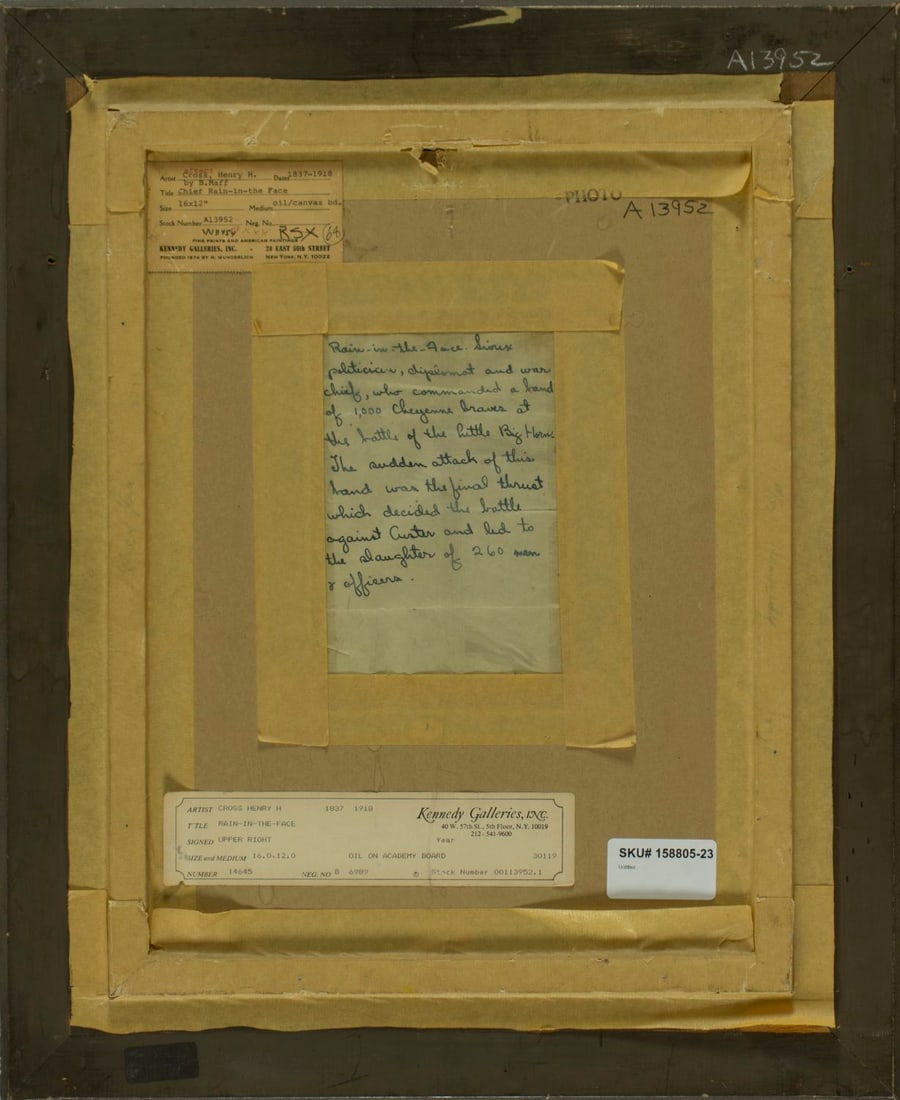 A13952
Artist Cross, Henry H. Dates 1837-1918
by B.Naff
Title Chief Rain-in-the Face
Size 16x12" Medium oil/canvas bd.
Stock Number A13952 Neg. No.
RSX 64
FINE PRINTS AND AMERICAN PAINTINGS
KENNEDY GALLERIES, INC. - 20 EAST 56th STREET
FOUNDED 1874 BY H. WUNDERLICH NEW YORK, N.Y. 10022
-PHOTO
A 13952
Rain-in-the-Face. Sioux
politician, diplomat and war
chief, who commanded a band
of 1,000 Cheyenne braves at
the battle of the Little Big Horn.
The sudden attack of this
band was the final thrust
which decided the battle
against Custer and led to
the slaughter of 260 men
& officers.
ARTIST CROSS HENRY H 1837 1918
Kennedy Galleries, INC.
40 W. 57th St., 5th Floor, N.Y. 10019
212 - 541-9600
TITLE RAIN-IN-THE-FACE
SIGNED UPPER RIGHT Year
SIZE and MEDIUM 16.0x12.0 OIL ON ACADEMY BOARD 30119
NUMBER 14645 NEG. NO B 6989 © Stock Number 00113952.1
SKU# 158805-23
Untitled